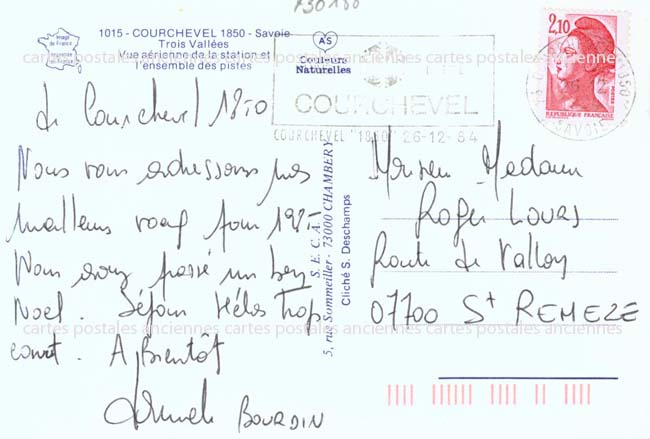 730180
1015 - COURCHEVEL 1850 - Savoie
Trois Vallées
Vue aérienne de la station et
l'ensemble des pistes
Image de France
AS
Couleurs
Naturelles
COURCHEVEL
COURCHEVEL "1850" 26-12-84
2,10
POSTES
REPUBLIQUE FRANÇAISE
SAVOIE
cartes postales anciennes cartes postales anciennes cartes postales anciennes
de Courchevel 1850
Nous vous adressons nos
meilleurs voeux pour 1985
Nous avons passé un bon
Noel. Séjour Hélas trop
court. A Bientôt
BOURDIN
S.E.C.A.
5, rue Sommeiller - 73000 CHAMBERY
Cliché S. Deschamps
Monsieur Madame
Roger
Route de Vallon
07700 St REMEZE
cartes postales anciennes cartes postales anciennes cartes postales anciennes